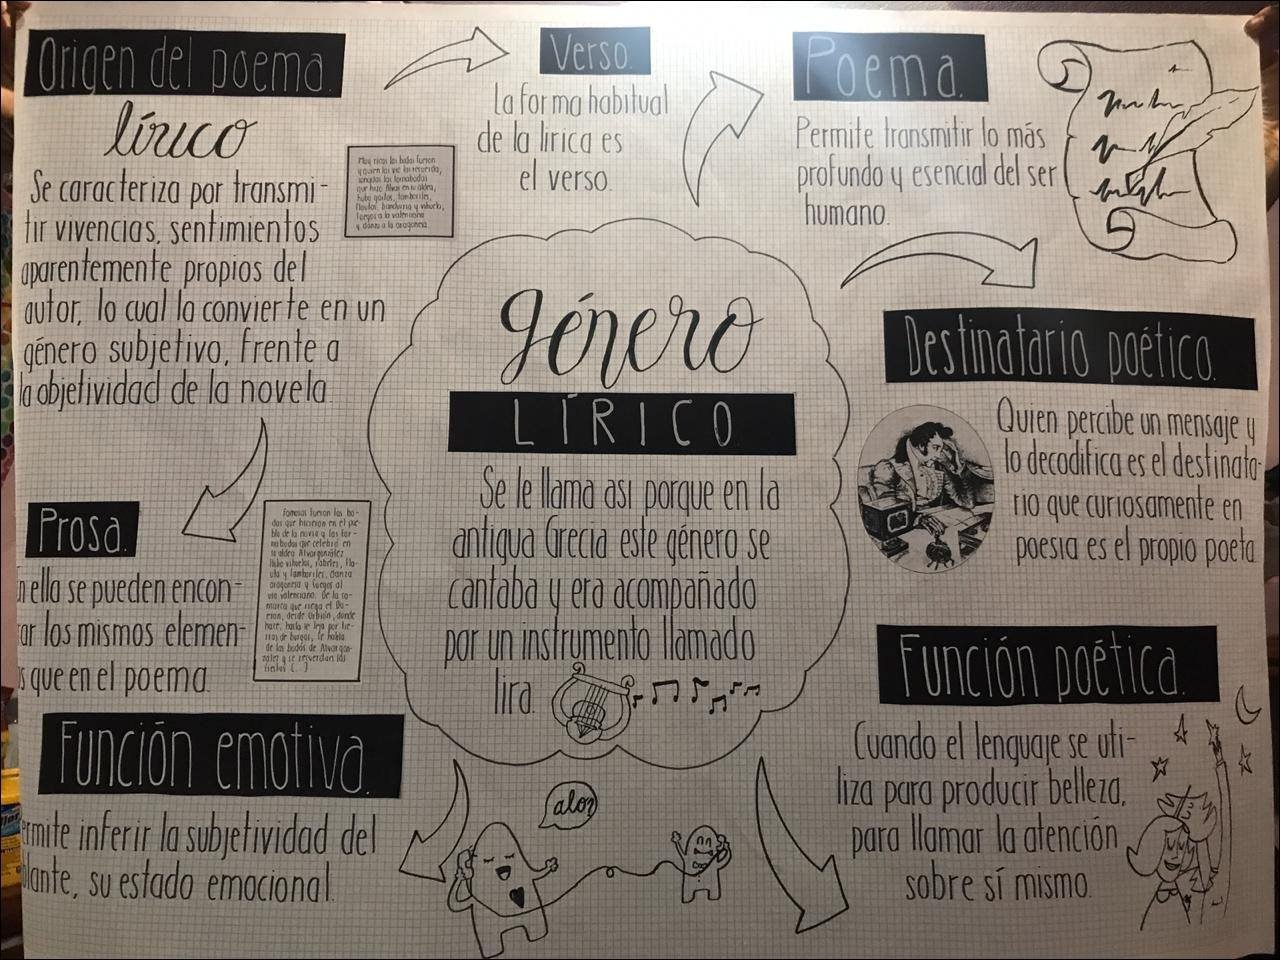 Origen del poema.
lírico
Se caracteriza por transmi-
tir vivencias, sentimientos
aparentemente propios del
autor, lo cual la convierte en un
género subjetivo, frente a
la objetividad de la novela
Muy ricas las bodas fueron
y quien las vio las recuerda,
sonadas las tornabodas
que hizo Alvar en su aldea,
hubo gaitas, tamboriles,
flautas, bandurria y vihuela,
fuegos a la valenciana
y danza a la aragonesa.
Verso.
La forma habitual
de la lirica es
el verso.
Poema.
Permite transmitir lo más
profundo y esencial del ser
humano.
género
LÍRICO
Se le llama asi porque en la
antigua Grecia este género se
cantaba y era acompañado
por un instrumento llamado
lira.
Destinatario poético.
Quien percibe un mensaje y
lo decodifica es el destinata-
rio que curiosamente en
poesia es el propio poeta
Prosa.
ella se pueden encon-
los mismos elemen-
que en el poema.
Famosas fueron las bo-
das que hicieron en el pue-
blo de la novia y las tor-
nabodas que celebró en
su aldea Alvargonzález
Hubo vihuelas, rabeles, flau-
ta y tamboriles, danza
aragonesa y fuegos al
uso valenciano. De la co-
marca que riega el Du-
eron, desde Urbión, donde
nace, hasta se leja por tie-
rras de burgos, se habla
de las bodas de Alvargon-
zález y se recuerdan las
fiestas (...)
Función emotiva.
inferir la subjetividad del
su estado emocional.
alo?
Función poética.
Cuando el lenguaje se uti-
liza para producir belleza,
para llamar la atención
sobre sí mismo.